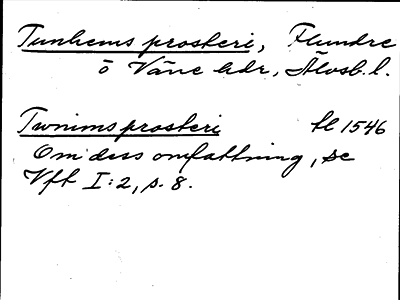 Tunhems prosteri, Flundre
o Väne hdr, Älvsb. l.
Twnims prosteri fl 1546
Om dess omfattning, se
Vft I:2, s. 8.